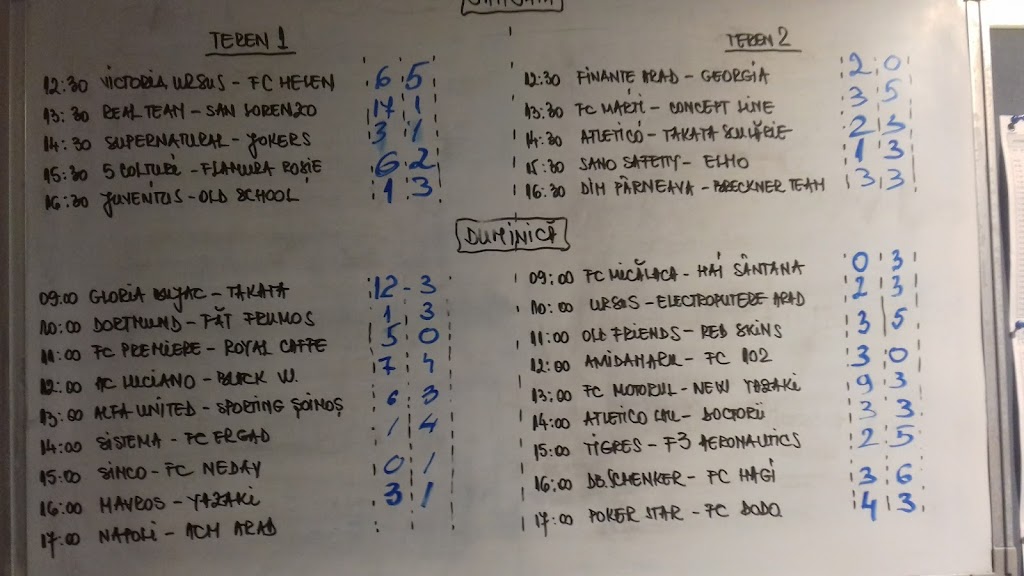 TEREN 1
12:30 VICTORIA URSUS - FC HELEN 6 5
13:30 REAL TEAM - SAN LORENZO 1
14:30 SUPERNATURAL - JOKERS 3 1
15:30 5 COLTURI - FLAMURA ROSIE 6 2
16:30 JUVENTUS - OLD SCHOOL 1 3
TEREN 2
12:30 FINANTE ARAD - GEORGIA 2 0
13:30 FC MARTI - CONCEPT LINE 3 5
14:30 ATLETICO - TAKATA 2
15:30 SANO SAFETY - ELMO 1 3
16:30 DIM PÂRNEAVA - BRECKNER TEAM 3 3
DUMINICĂ
09:00 GLORIA BUJAC - TAKATA 12 - 3
10:00 DORTMUND - FĂT FRUMOS 1 3
11:00 FC PREMIERE - ROYAL CAFFE 5 0
12:00 AC LUCIANO - BLACK W. 7 4
13:00 ALFA UNITED - SPORTING ȘOIMOȘ 6 3
14:00 SISTEMA - FC ERGAD 1 4
15:00 SIMCO - FC NEDAY 0 1
16:00 MAVROS - YAZAKI 3 1
17:00 NAPOLI - ACM ARAD
09:00 FC MICĂLACA - SÂNTANA 0 3
10:00 URSUS - ELECTROPUTERE ARAD 2 3
11:00 OLD FRIENDS - RED SKINS 3 5
12:00 AMIDAMARU - FC 102 3 0
13:00 FC MOTORUL - NEW YAZAKI 9 3
14:00 ATLETICO - DOCTORII 3 3
15:00 TIGRES - F3 AERONAUTICS 2 5
16:00 DB SCHENKER - FC HAGI 3 6
17:00 POKER STAR - FC DODO 4 3